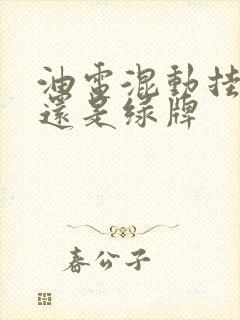 油電混動挂
還是绿牌
春公子